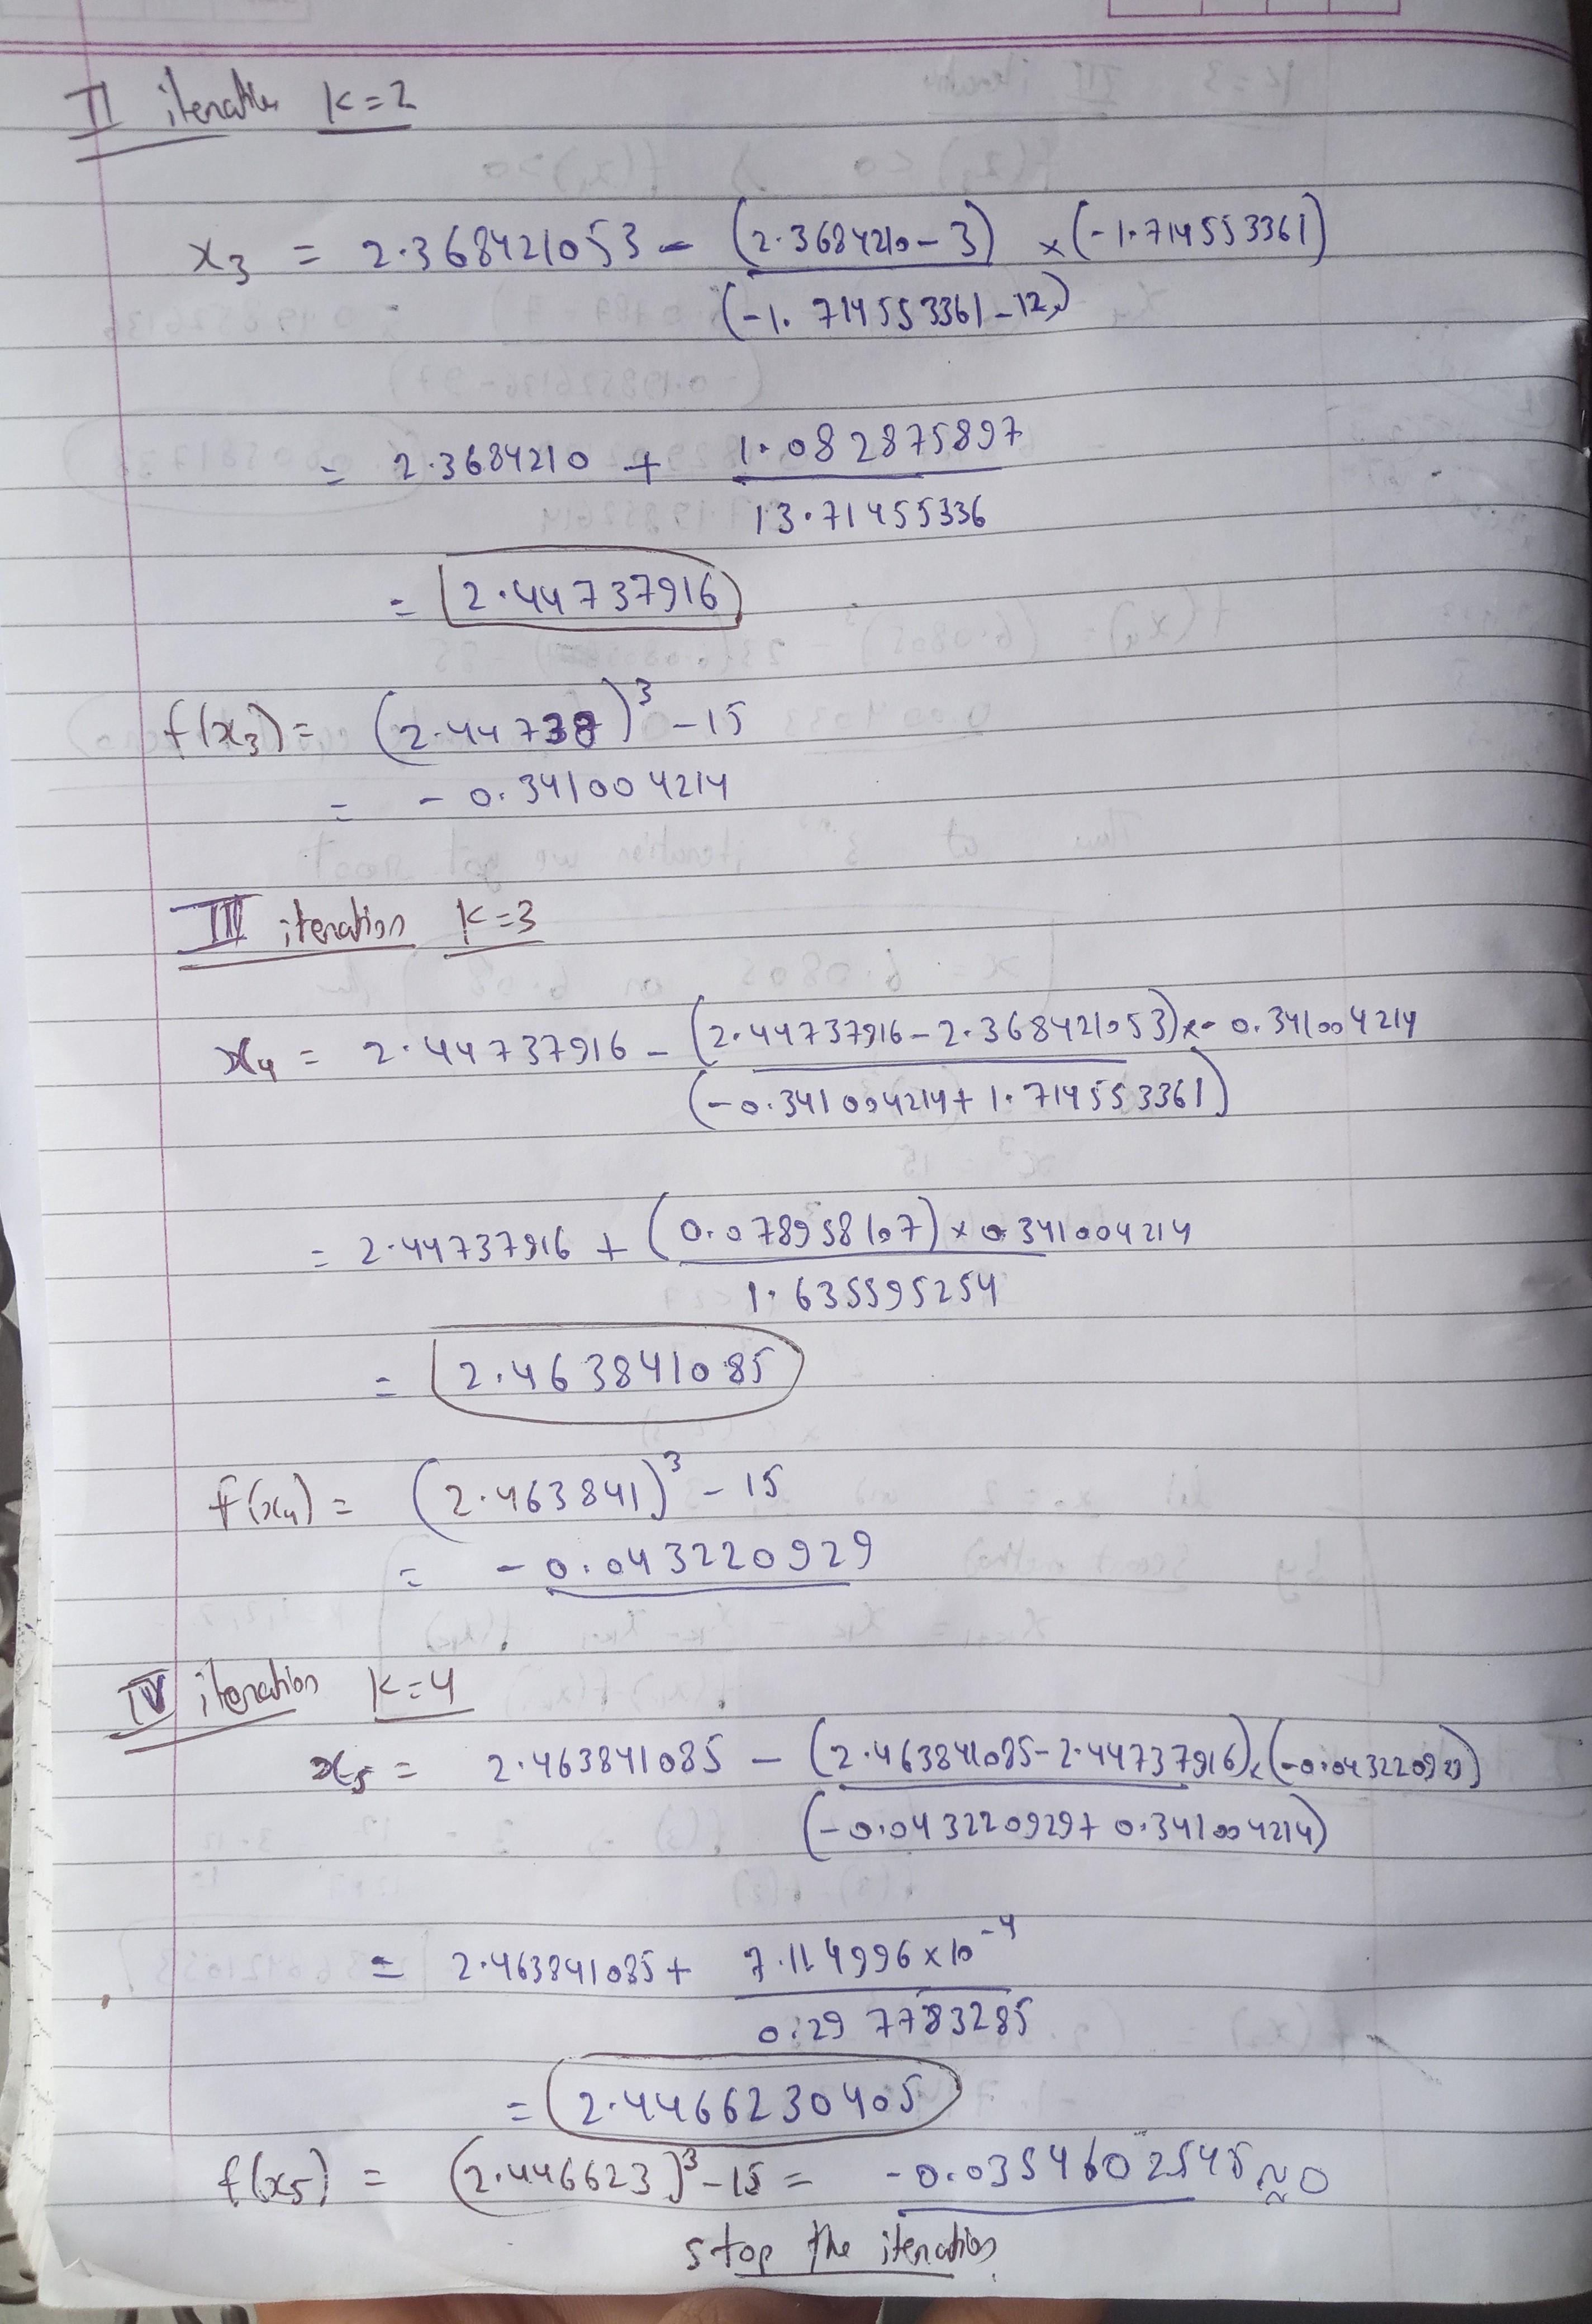 II iteration K=2
x₃ = 2.368421053 - (2.3684210-3) × (-1.714553361)
(-1.714553361-12)
= 2.3684210 + 1.082875897
13.71455336
= 2.44737916
f(x₃) = (2.44738)³ - 15
= - 0.341004214
III iteration K=3
x₄ = 2.44737916 - (2.44737916-2.368421053)×-0.341004214
(-0.341004214+1.714553361)
= 2.44737916 + (0.078958107) × 0.341004214
1.635595254
= 2.463841085
f(x₄) = (2.463841)³ - 15
= - 0.043220929
IV iteration K=4
x₅ = 2.463841085 - (2.463841085-2.44737916)×(-0.043220929)
(-0.043220929+0.341004214)
= 2.463841085 + 7.114996×10⁻⁴
0.297783285
= 2.4466230405
f(x₅) = (2.446623)³-15 = -0.0354602545 ≈ 0
stop the iteration.